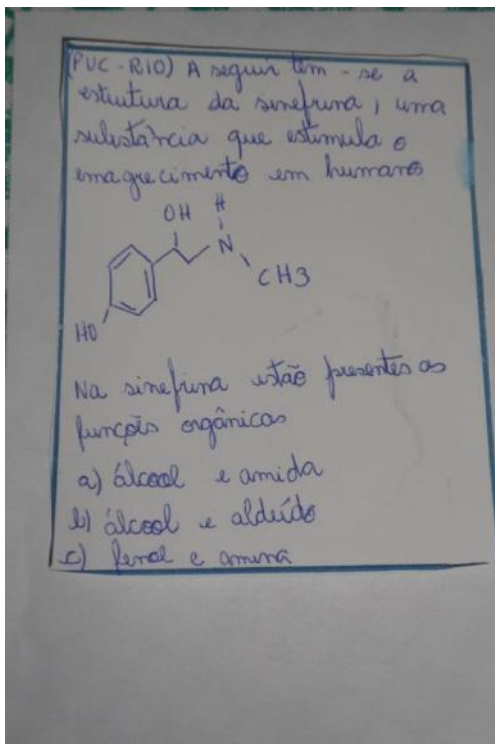 (PUC-RIO) A seguir têm-se a
estrutura da sinefrina, uma
substância que estimula o
emagrecimento em humanos
OH H
N
CH3
HO
Na sinefrina estão presentes as
funções orgânicas
a) álcool e amida
b) álcool e aldeído
c) fenol e amina